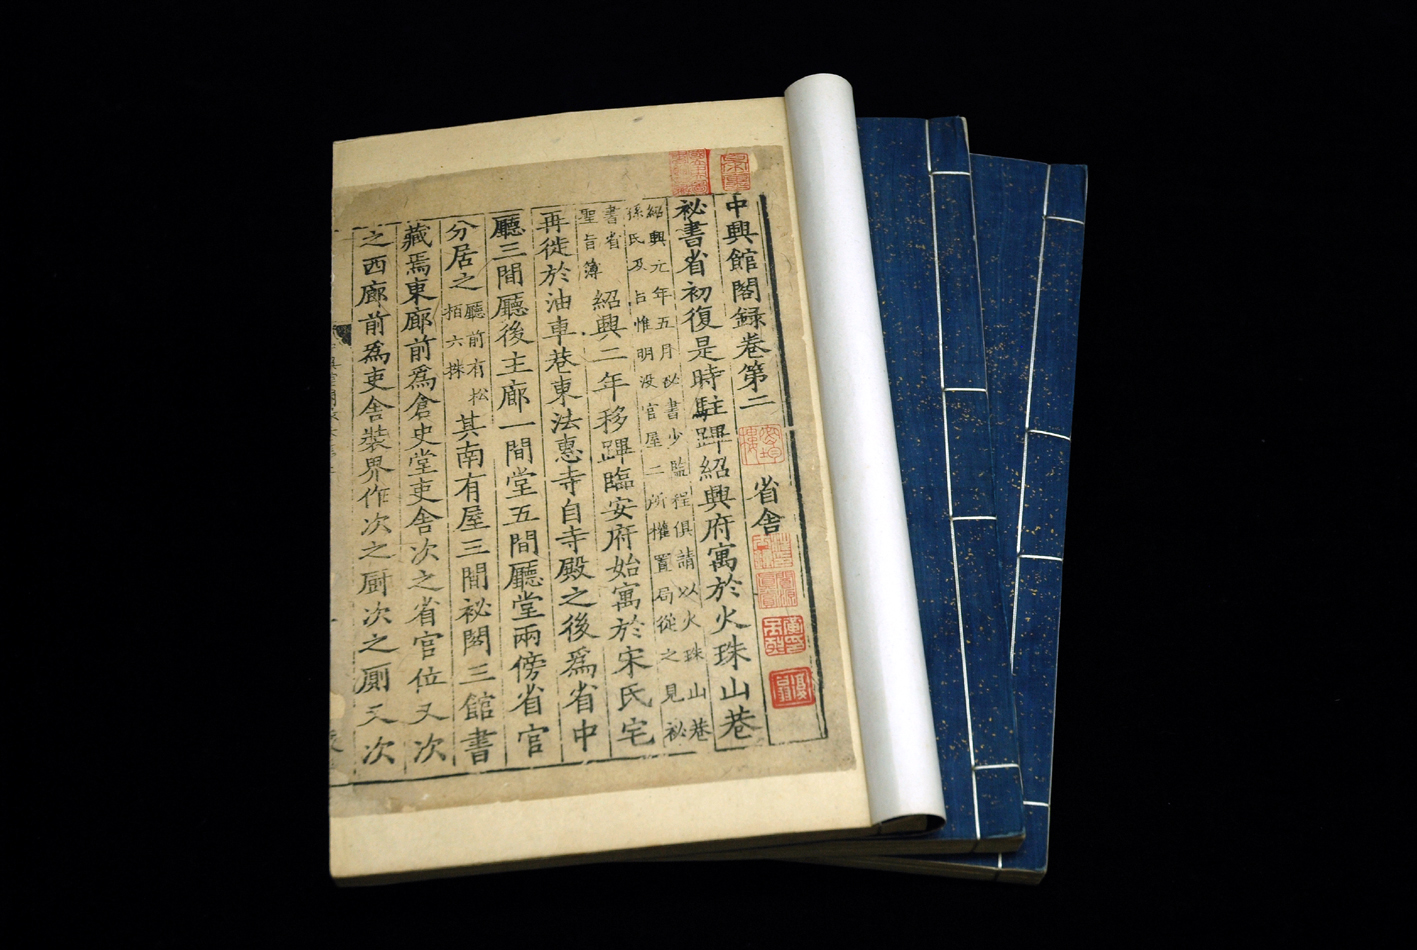 中興館閣録卷第二
省舍
祕書省初復是時駐蹕紹興府寓於火珠山巷
紹興元年五月祕書少監程俱請以火珠山巷
孫氏及占惟明没官屋二所權置局從之見祕
書省
聖旨簿
紹興二年移蹕臨安府始寓於宋氏宅
再徙於油車巷東法惠寺自寺殿之後爲省中
廳三間廳後主廊一間堂五間廳堂兩傍省官
分居之
廳前有松
栢六株
其南有屋三間祕閣三館書
藏焉東廊前爲倉史堂吏舍次之省官位又次
之西廊前爲吏舍裝界作次之厨次之厠又次